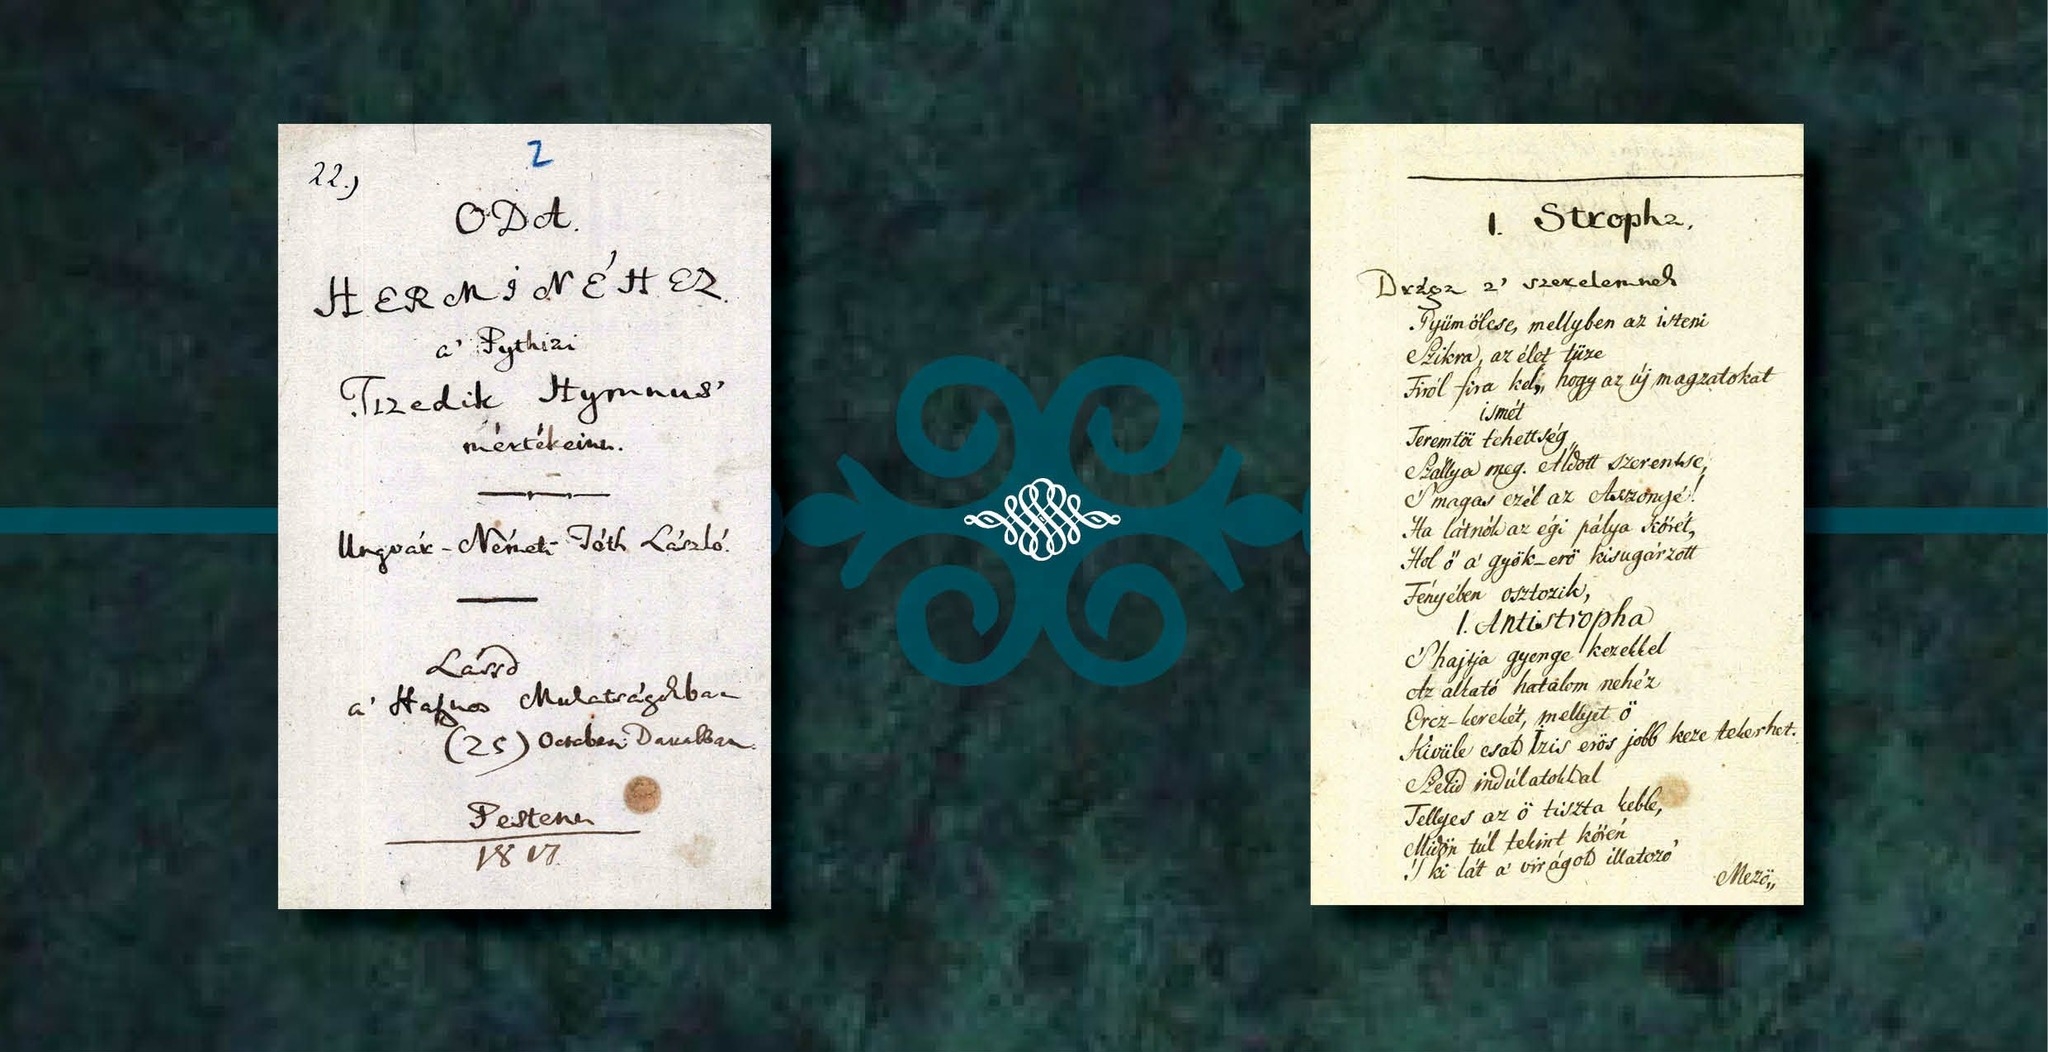 2
22.)
ODA.
HERMINÉHEZ.
a' Pythiai
Tizedik Hymnus'
mértékeinn.
Ungvár-Németi Tóth László.
Lássd
a' Hasznos Mulatságokban
(25)
Pestenn
1817.
1. Stropha.
Drága a' szerelemnek
Gyümölcse, mellyben az isteni
Szikra, az élet tüze
Firól fira kel, hogy az új magzatokat
ismét
Teremtöi tehettség
Szállya meg. Áldott szerentse,
'S magas czél az Asszonyé!
Ha látnók az égi pálya körét,
Hol ő a' gyök-erö kisugárzott
Fényében osztozik,
1. Antistropha
'S hajtja gyenge kezekkel
Az alkató hatalom nehéz
Ércz-kerekét, mellyet ö
Kivüle csak Izis erös jobb keze tekerhet.
Szelid indúlatokkal
Tellyes az ö tiszta keble,
Midőn túl tekint körén
'S ki lát a' virágok illatozó
Mező,,